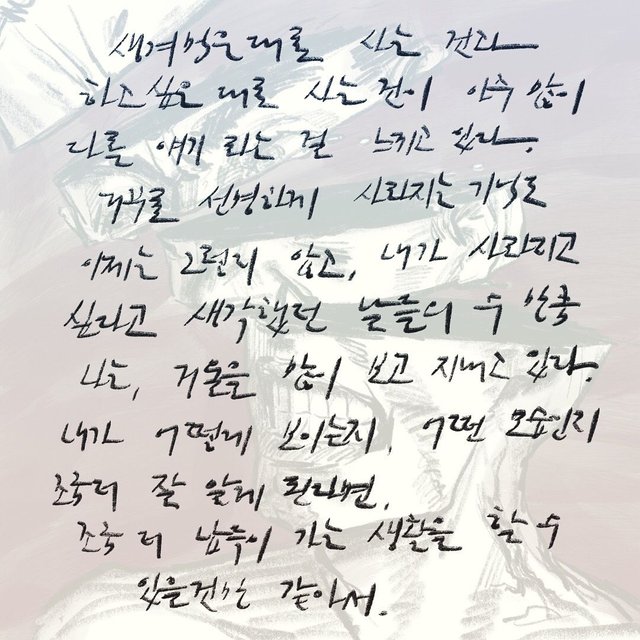 생겨먹은대로 사는 건과
하고싶은 대로 사는건이 아주 많이
다른 얘기 라는 걸 느끼고 있다.
선명하게 사라지는 기억도
이제는 그런지 않고, 내가 사라지고
싶다고 생각했던 날들의 수 만큼
나는, 거울을 많이 보고 지내고 있다.
내가 어떻게 보이는지, 어떤 모습인지
조금더 잘 알게 된다면,
조금 더 납득이 가는 생활을 할 수
있을건만 같아서.